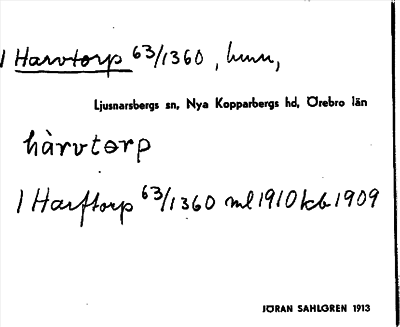 1 Harvtorp 63/1360, hmn,
Ljusnarsbergs sn, Nya Kopparbergs hd, Örebro län
hàrvtɵrp
1 Harftorp 63/1360 ml 1910 kb 1909
JÖRAN SAHLGREN 1913